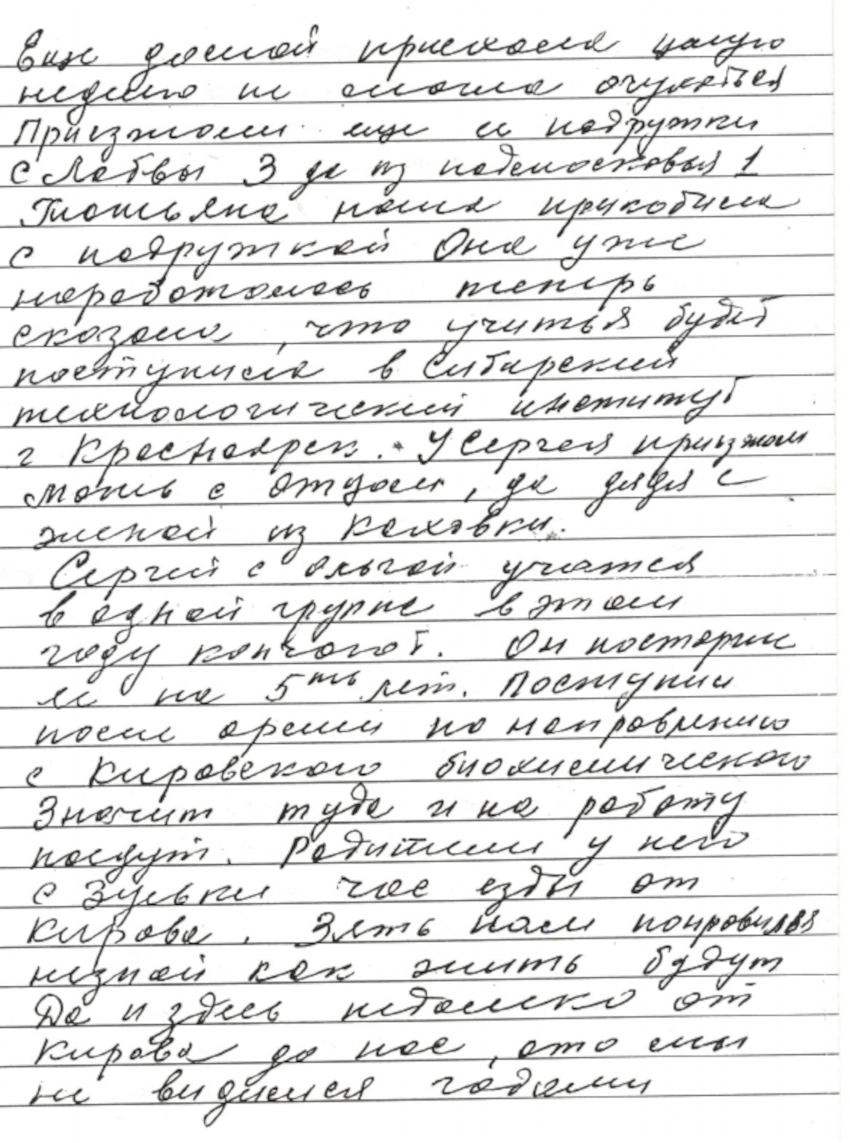 Еще домой приехала целую
неделю не могла очухаться
Приезжали еще и подружки
с Лобвы 3 да из подмосковья 1
Татьяна наша прикатила
с подружкой Она уже
наработалась теперь
сказала, что учиться будет
поступила в Сибирский
технологический институт
г Красноярск. У Сергея приезжали
мать с отцом, да дядя с
женой из Каховки.
Сергей с Ольгой учатся
в одной группе в этом
году кончают. Он постарше
ее на 5ть лет. Поступил
после армии по направлению
с Кировского биохимического
Значит туда и на работу
поедут. Родители у него
с Зуевки час езды от
Кирова. Зять нам понравился
незнай как жить будут
Да и здесь недалеко от
Кирова до нас, ато мы
не видимся годами